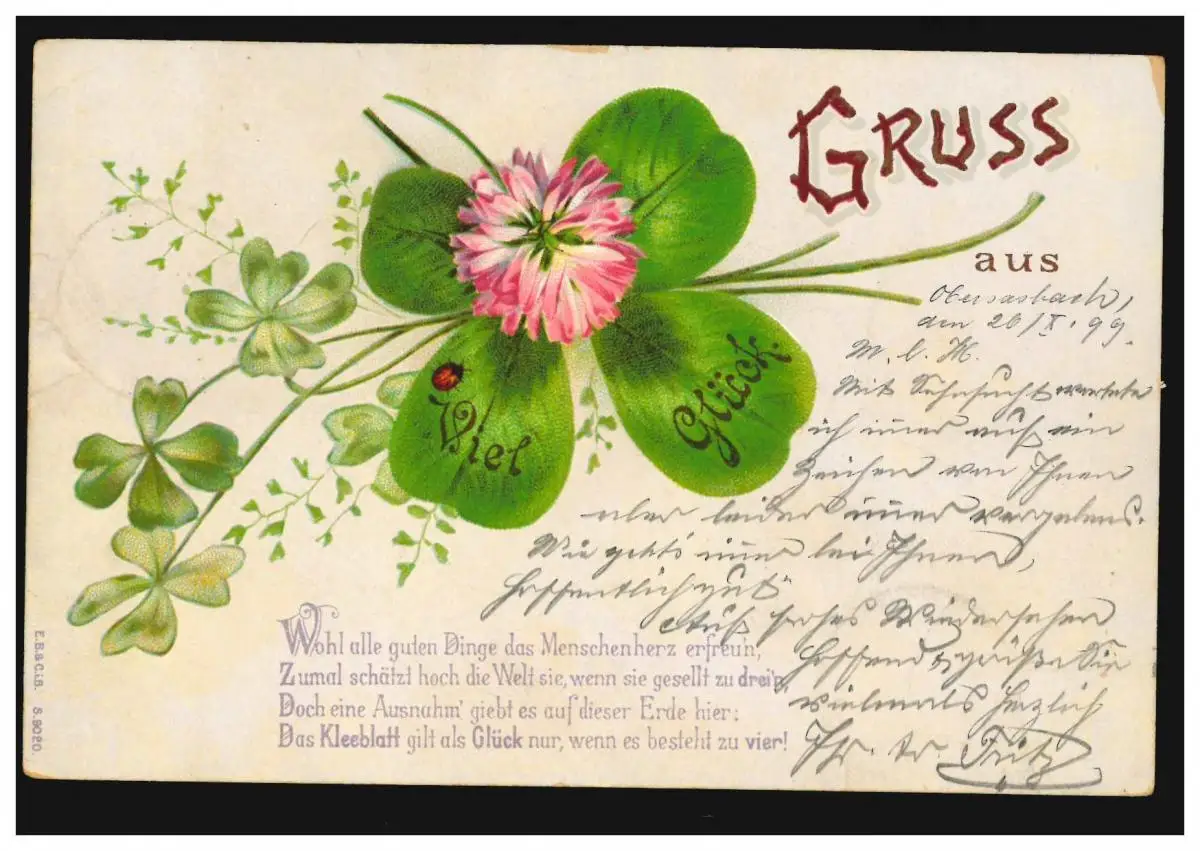 GRUSS
aus
Obersasbach,
den 26/X. 99.
M. l. H.
Mit Sehnsucht wartete
ich imer auf ein
Zeichen von Ihnen
aber leider imer vergebens.
Wie geht's imer bei Ihnen,
hoffentlich gut
Auf frohes Wiedersehen
hoffend grüße Sie
vielmals herzlich
Ihr. tr. Fritz
Viel
Glück
Wohl alle guten Dinge das Menschenherz erfreu'n,
Zumal schätzt hoch die Welt sie, wenn sie gesellt zu drei'n,
Doch eine Ausnahm' giebt es auf dieser Erde hier:
Das Kleeblatt gilt als Glück nur, wenn es besteht zu vier!
E.B.& C.i.B. S.9020.